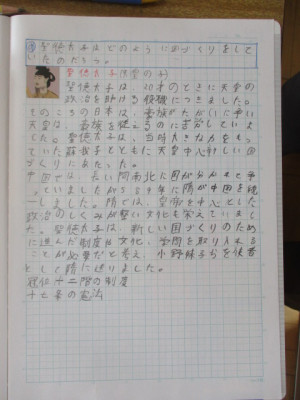 聖徳太子はどのように国づくりをして
いたのだろう。
聖徳太子(天皇の子)
聖徳太子は、20才のときに天皇の
政治を助ける役職につきました。
そのころの日本は、豪族がたがいに争い
天皇は、豪族を従えるのに苦労していま
した。聖徳太子は、当時大きな力をもっ
ていた蘇我氏とともに天皇中心の新しい国
づくりにあたった。
中国では、長い間南北に国が分かれて争
っていましたが589年に隋が中国を統
一しました。隋では、皇帝を中心とした
政治のしくみが整い文化も栄えていまし
た。聖徳太子は、新しい国づくりのため
に進んだ制度や文化、学問を取り入れる
ことが必要だと考え、小野妹子らを使者
として隋に送りました。
冠位十二階の制度
十七条の憲法